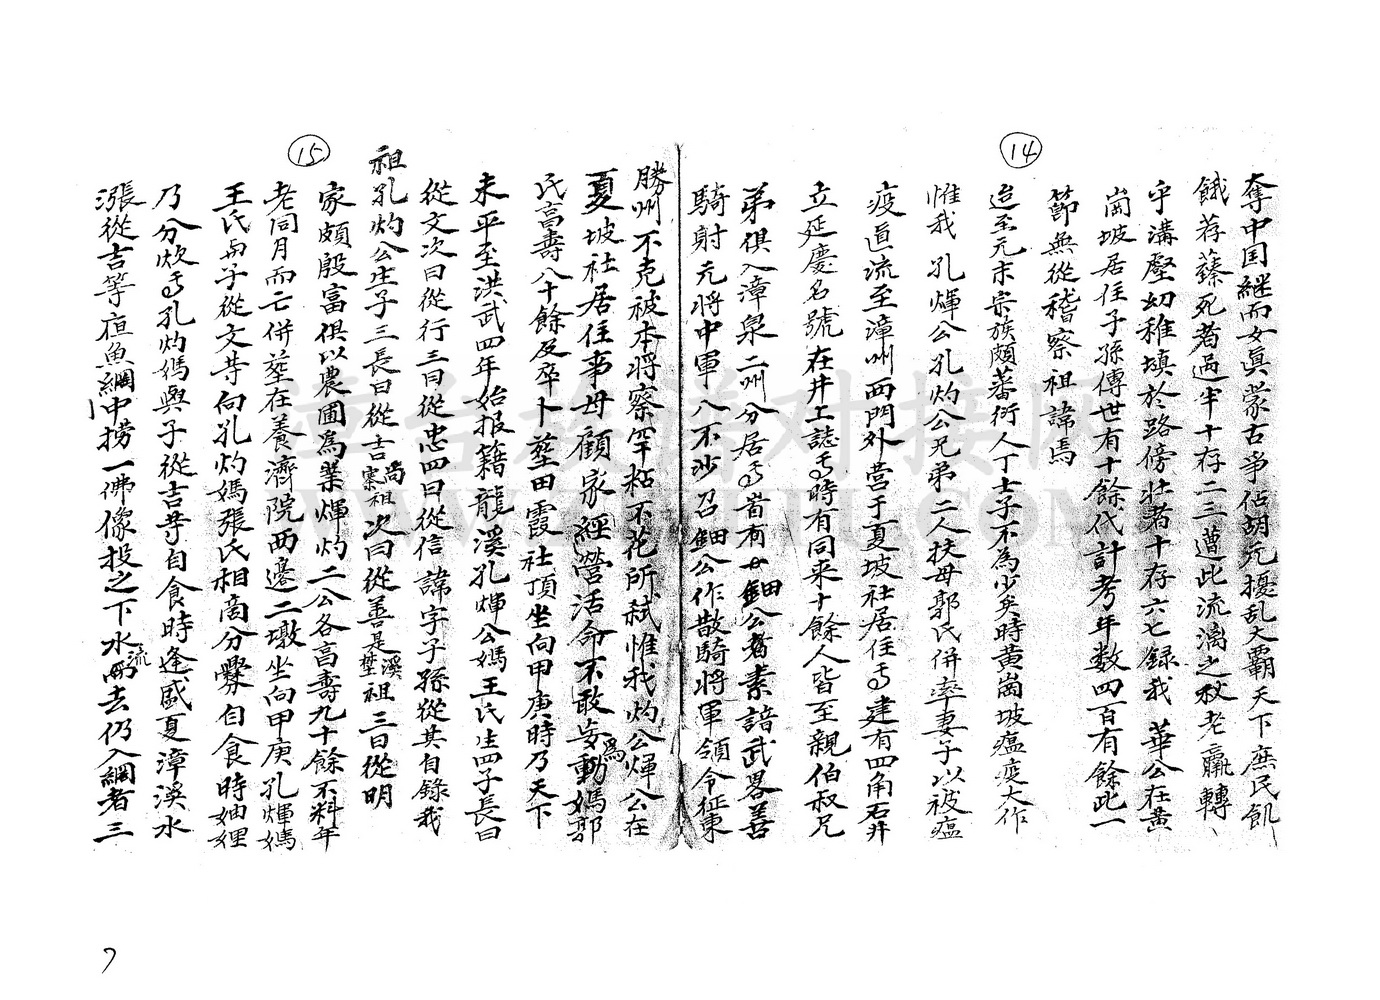 14
奪中国継而女真蒙古爭佔胡元擾乱大覇天下庶民飢
餓荐蓁死者過半十存二三遭此流漓之秋老羸轉
乎溝壑幼稚填於路傍壮者十存六七錄我 華公在黃
崗坡居住子孫傳世有十餘代計考年数四百有餘此一
節無從稽察祖諱焉
迨至元末宗族頗蕃衍人丁士子不為少矣時黄崗坡瘟疫大作
惟我 孔煇公孔灼公兄弟二人扶母郭氏併率妻子以被瘟
疫道流至漳州西門外营于夏坡社居住焉建有四角石井
立延慶名號在井上誌焉時有同来十餘人皆至親伯叔兄
弟俱入漳泉二州分居焉 有 鈿公者素諳武畧善
騎射元将中軍八不沙召鈿公作散騎将軍領令征東
15
勝州不克被本将察罕粘不花所弑惟我灼公煇公在
夏坡社居住事母顧家經營活命不敢妄為動媽郭
氏高壽八十餘及卒卜塟田霞社頂坐向甲庚時乃天下
未平至洪武四年始报籍龍溪孔煇公媽王氏生四子長曰
從文次曰從行三曰從忠四曰從信諱字子孫從其自錄我
祖孔灼公生子三長曰從吉尚寨祖次曰從善是溪墘祖三曰從明
家頗殷富俱以農圃為業煇灼二公各高壽九十餘不料年
老同月而亡併塟在養濟院西邊二墩坐向甲庚孔煇媽
王氏与子從文等向孔灼媽張氏相商分爨自食時妯娌
乃分炊焉孔灼媽與子從吉等自食時逢盛夏漳溪水
漲從吉等疸魚網中捞一佛像投之下水流而去仍入網者三
7